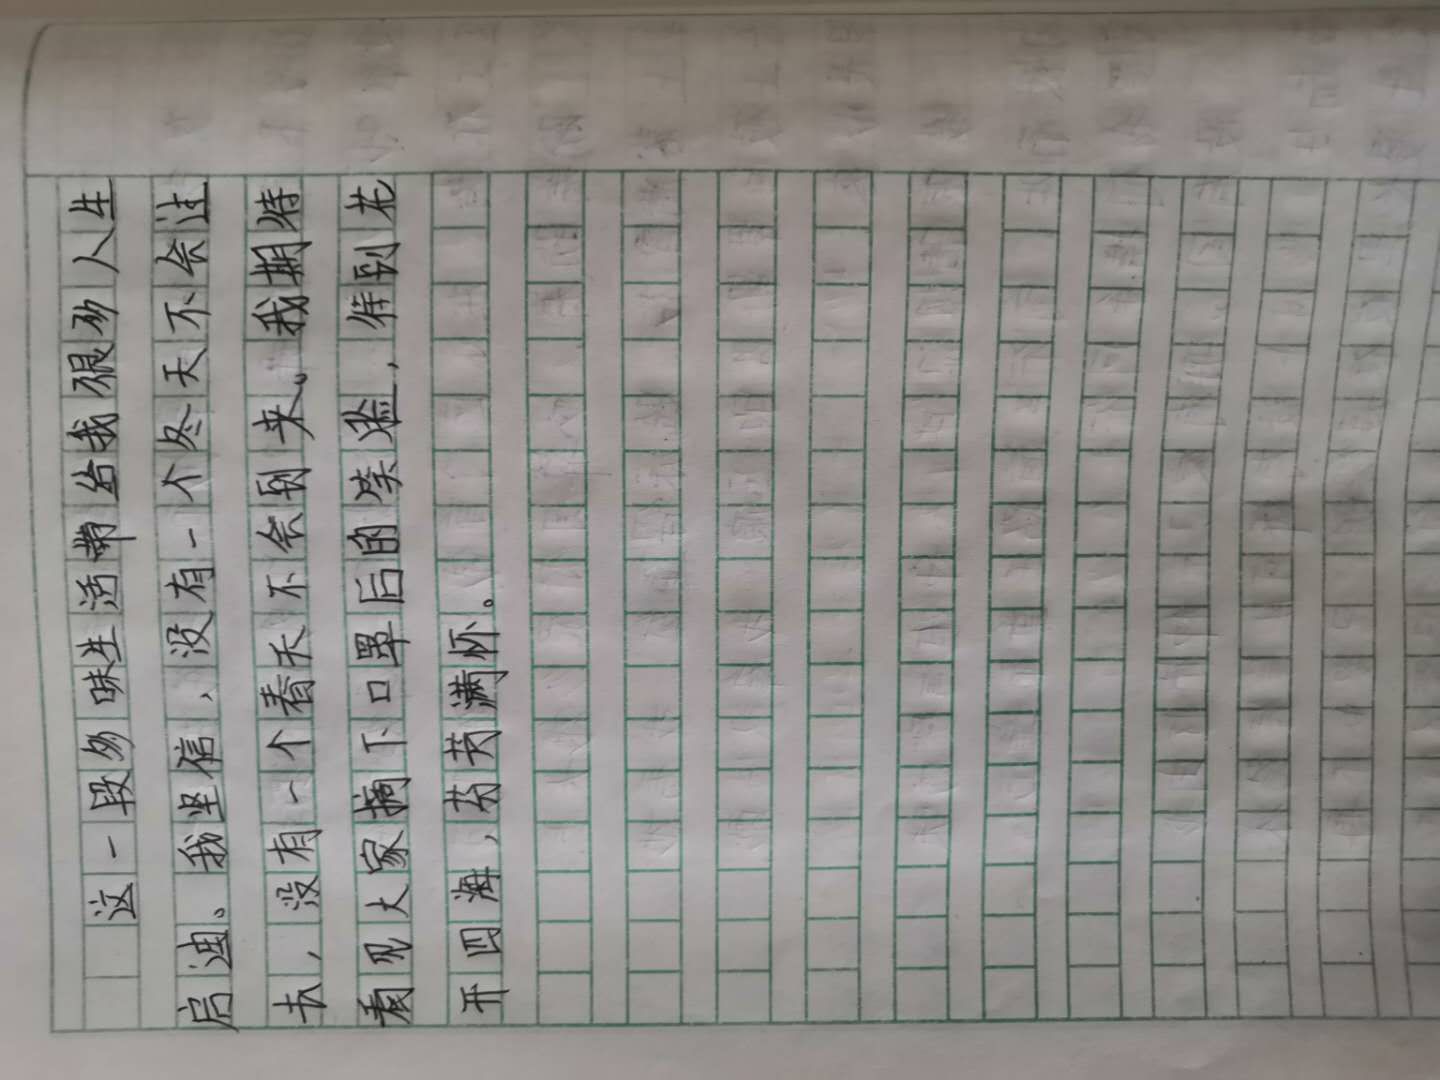 这一段多味生活带给我很多人生
启迪。我坚信，没有一个冬天不会过
去，没有一个春天不会到来。我期待
看见大家摘下口罩后的笑脸，等到花
开四海，芬芳满怀。